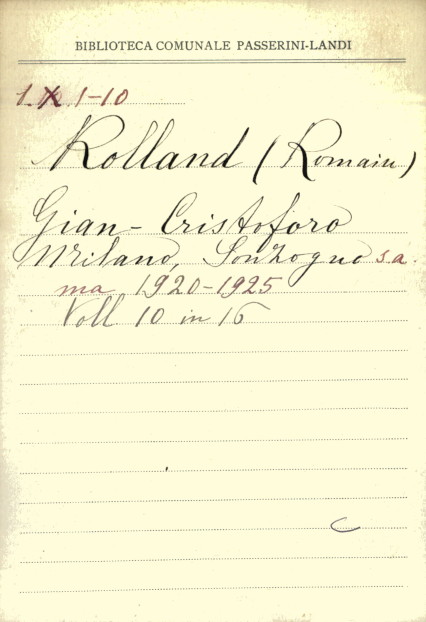 BIBLIOTECA COMUNALE PASSERINI-LANDI
1. X. 1-10
Rolland (Romain)
Gian-Cristoforo
Milano, Sonzogno s.a.
ma 1920-1925
Voll 10 in 16